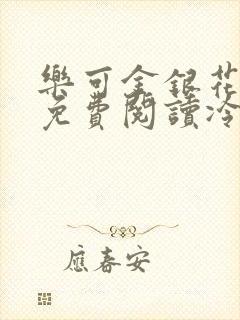 樂可金銀花
免費閱讀冷
應春安